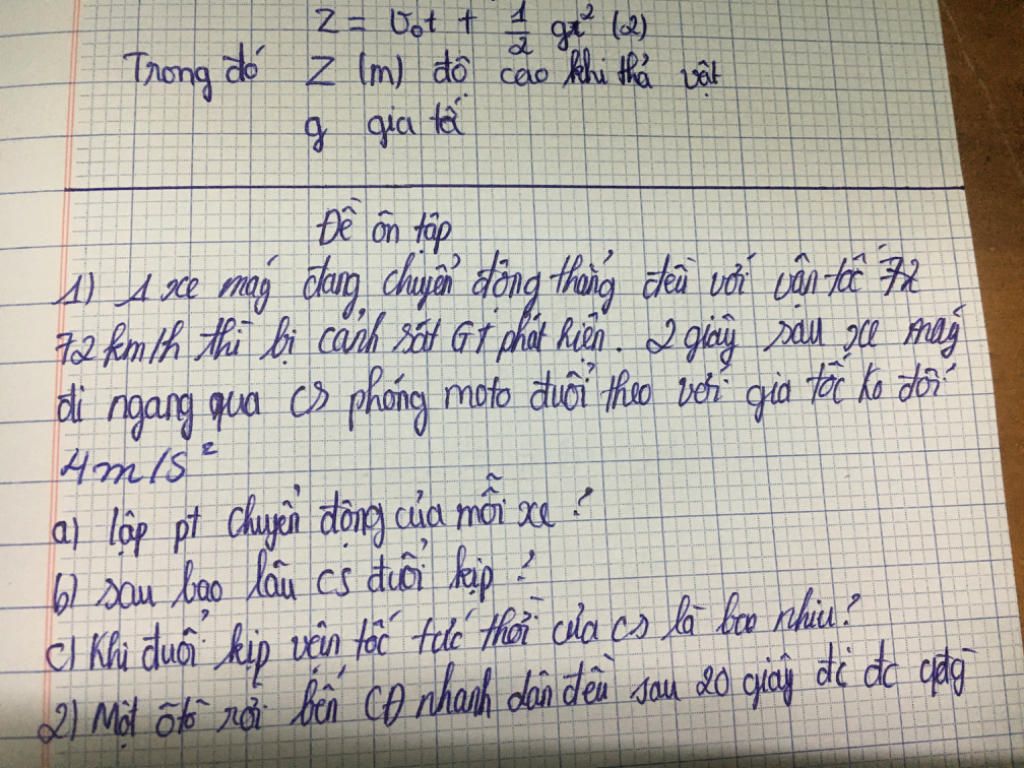 Z = v₀t + 1/2 gx² (2)
Trong đó Z (m) độ cao khi thả vật
g gia tố
Đề ôn tập
1) 1 xe máy đang chuyển động thẳng đều với vân tốc 72
72 km/h thì bị cảnh sát GT phát hiện. 2 giây sau xe máy
đi ngang qua CS phóng moto đuổi theo với gia tốc ko đổi
4m/s²
a) lập pt chuyển động của mỗi xe ?
b) sau bao lâu CS đuổi kịp ?
c) Khi đuổi kịp vận tốc tức thời của CS là bao nhiu?
2) Một ôtô rời bến CĐ nhanh dần đều sau 20 giây đi đc qđg